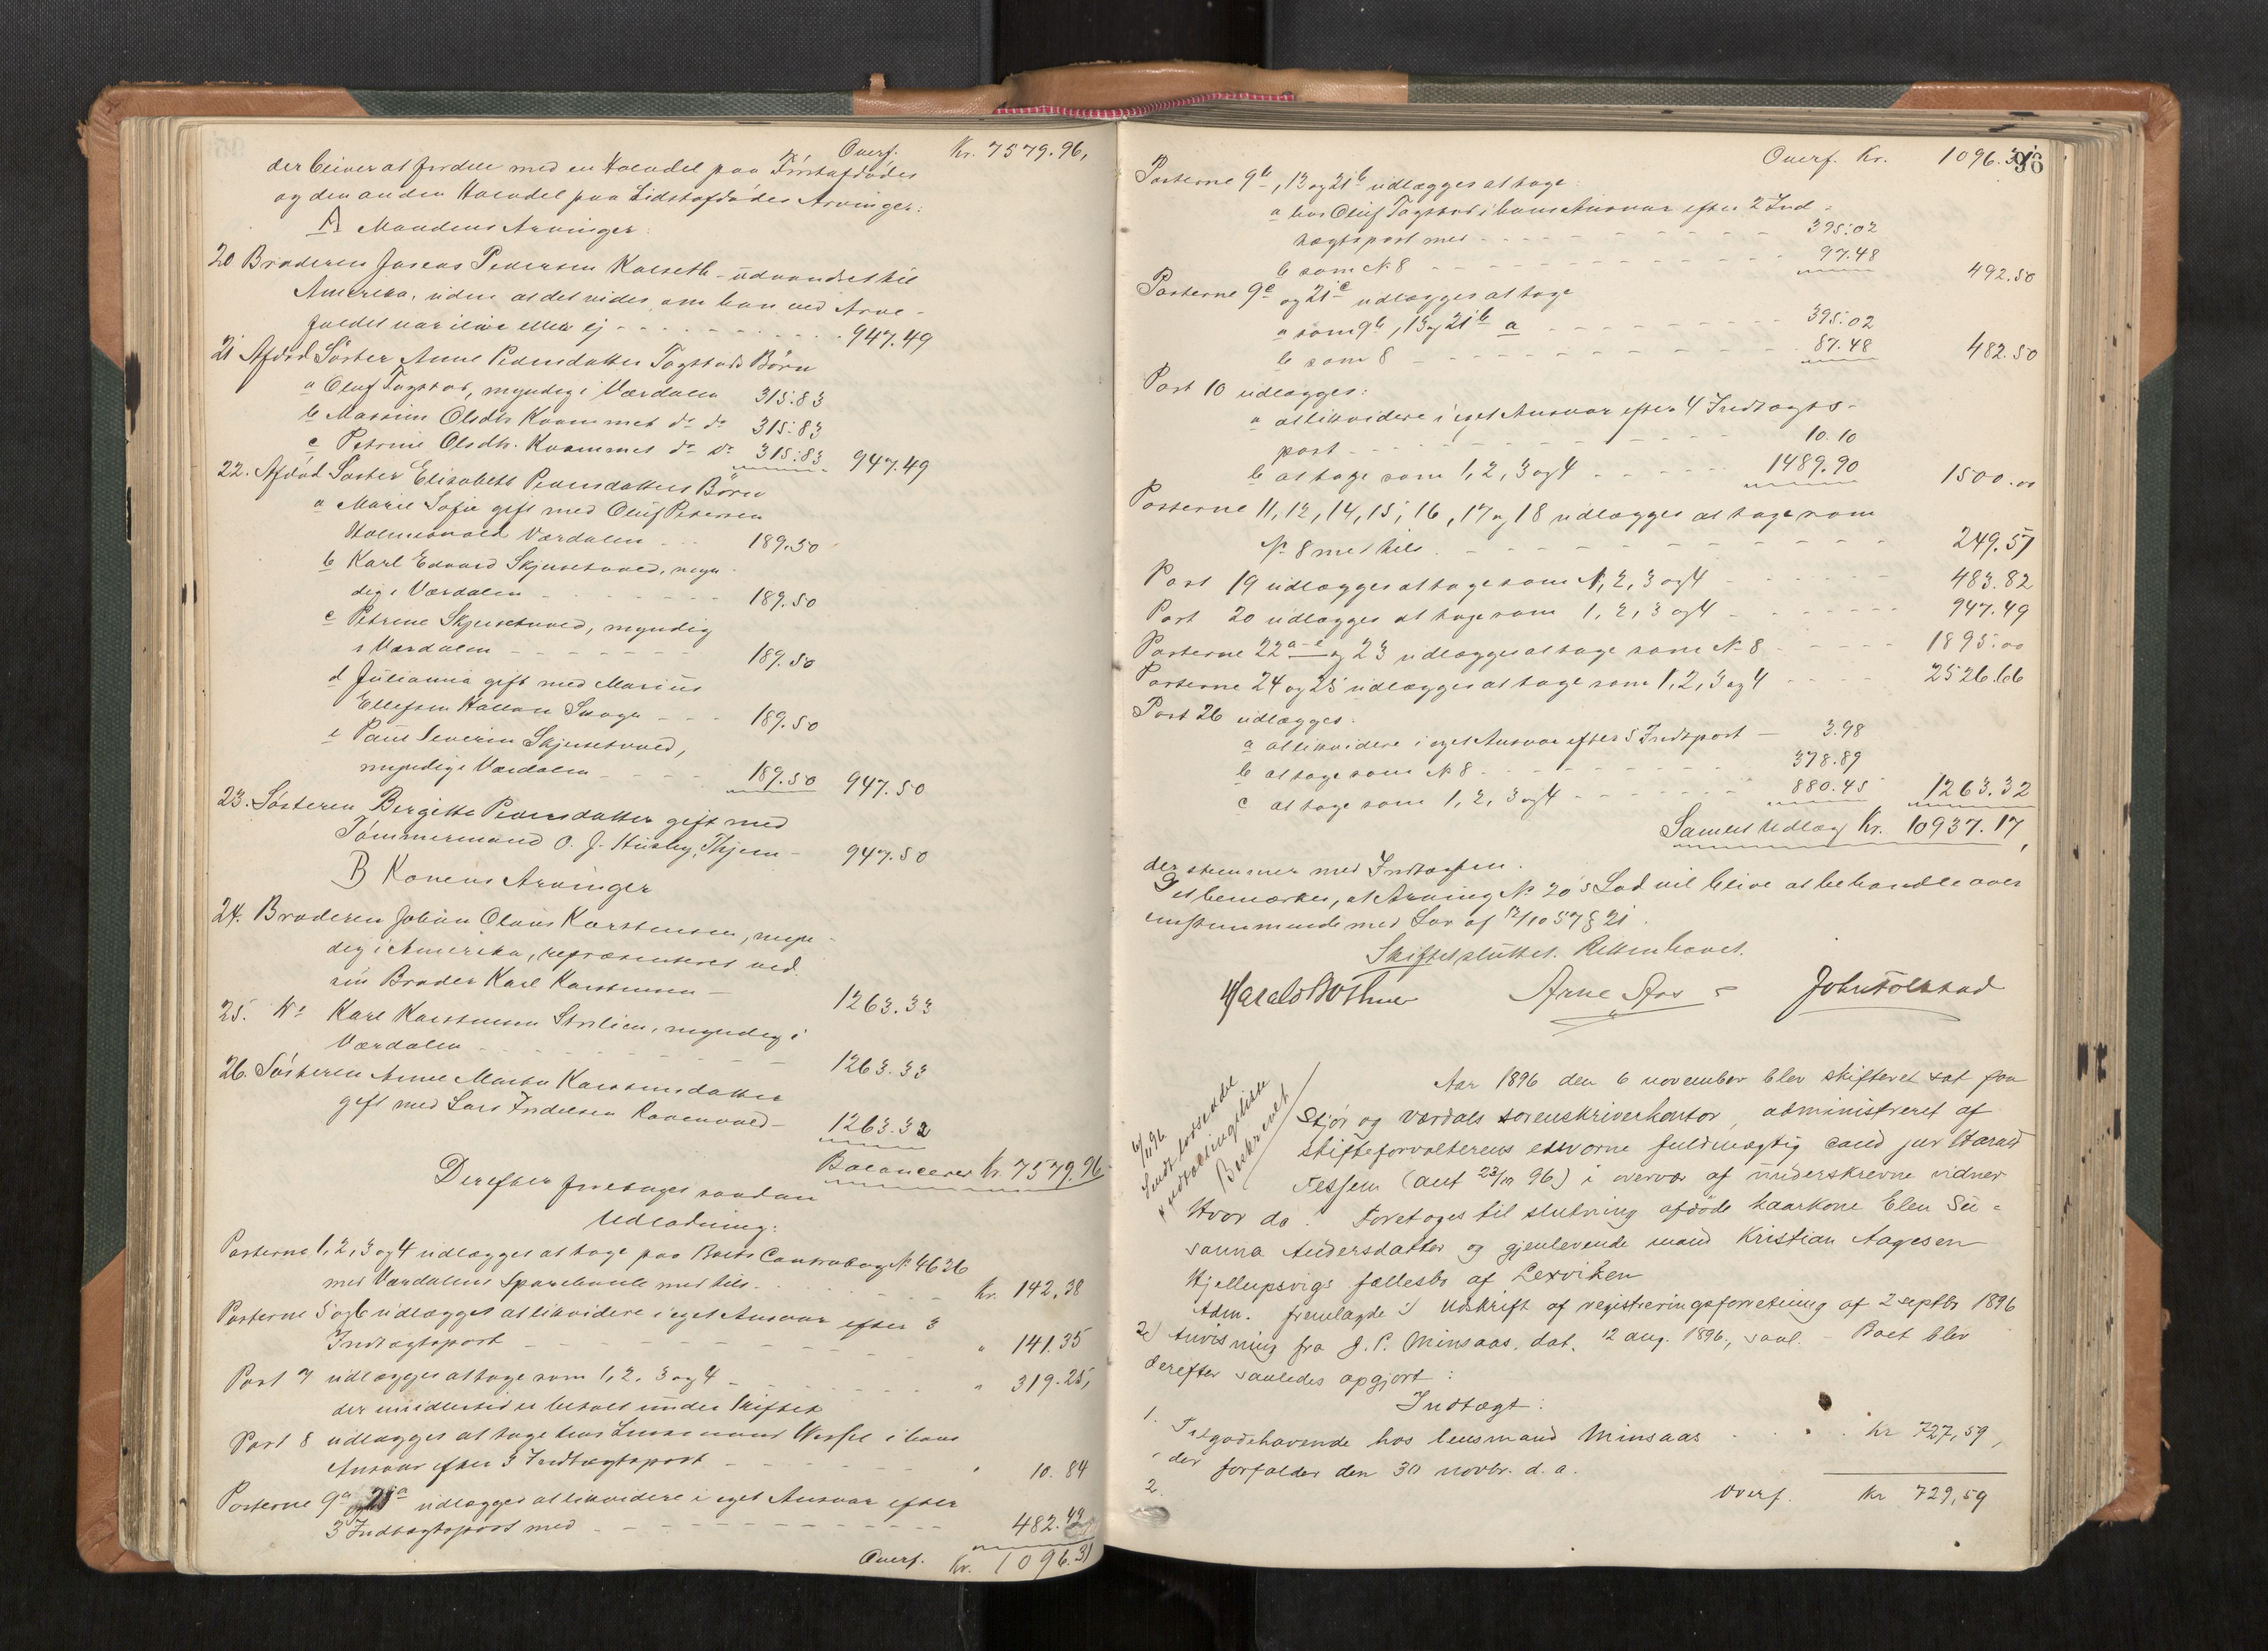 Overf. Kr. 7579.96,
der bliver at fordele med en Halvdel paa Førstafdødes
og den anden Halvdel paa Sidstafdødes Arvinger:
A Mandens Arvinger:
20 Broderen Pedersen Kalseth - udvandret til
Amerika, uden at det vides, om han ved Arve-
faldet var ilive eller ej - - - 947.49
21 Afdød Søster Anne Pedersdatter Tagstads Børn
a Oluf Tagstad, myndig i Værdalen 315.83
b Massine Olsdtr. Kvammet do do 315.83
c Petrine Olsdtr. Kvammet do do 315.83 947.49
22. Afdød Søster Elisabeth Pedersdatters Børn
a Marie Sofie gift med Oluf Petersen
Værdalen - - 189.50
b Karl Edvard Skjusetvold, myn-
dig i Værdalen - - - 189.50
c Petrine Skjusetvold, myndig
i Værdalen - - - 189.50
d Julianna gift med Marius
Ellefsen Hallan - - - 189.50
e Paul Severin Skjusetvold,
myndig i Værdalen - - - 189.50 947.50
23. Søsteren Bergitta Pedersdatter gift med
Tømmermand O. J. Husby, - 947.50
B Konens Arvinger
24. Broderen Johan Olaus Karstensen, myn-
dig i Amerika, repræsenteret ved
sin Broder Karl Karstensen - 1263.33
25. Do Karl Karstensen myndig i
Værdalen - - - 1263.33
26. Søsteren Anne Marta Karstensdatter
gift med Lars - 1263.32
Balancerer Kr. 7579.96
Derefter foretoges saadan
Udlodning:
Posterne 1, 2, 3 og 4 udlægges at tage paa Boets Contrabog No 4636
med Værdalens Sparebank med tils. - - - Kr. 142.38
Posterne 5 og 6 udlægges at likvidere i eget Ansvar efter 3
Indtægtspost - - - " 141.35
Post 7 udlægges at tage som 1, 2, 3 og 4 - - - " 319.25,
der imidlertid er betalt under Skiftet
Post 8 udlægges at tage hos Lensmand Wessel i hans
Ansvar efter 3 Indtægtspost - - - " 10.84
Posterne 9a og 21a udlægges at likvidere i eget Ansvar efter
3 Indtægtspost med - - - 482.49
Overf. Kr. 1096.31
96
Overf. Kr. 1096.31
Posterne 9b, 13 og 21b udlægges at tage
a hos Oluf Tagstad i hans Ansvar efter 2 Ind-
tægtspost med - - - 395.02
b som No 8 - - - 97.48 492.50
Posterne 9c og 21c udlægges at tage
a som 9b, 13 og 21b a - - - 395.02
b som 8 - - - 87.48 482.50
Post 10 udlægges:
a at likvidere i eget Ansvar efter 4 Indtægts-
post - - - 10.10
b at tage som 1, 2, 3 og 4 - - - 1489.90 1500.00
Posterne 11, 12, 14, 15, 16, 17 og 18 udlægges at tage som
No 8 med tils. - - - 249.57
Post 19 udlægges at tage som 1, 2, 3 og 4 - - - 483.82
Post 20 udlægges at tage som 1, 2, 3 og 4 - - - 947.49
Posterne 22a-e og 23 udlægges at tage som No 8 - - - 1895.00
Posterne 24 og 25 udlægges at tage som 1, 2, 3 og 4 - - - 2526.66
Post 26 udlægges:
a at likvidere i eget Ansvar efter 5 Indtpost - 3.98
b at tage som No 8 - - - 378.89
c at tage som 1, 2, 3 og 4 - - - 880.45 1263.32
Samlet Udlæg Kr. 10937.17,
der stemmer med Indtægten.
Det bemærkes, at Arving No 20's Lod vil blive at behandle over-
ensstemmende med Lov af 12/10 57 § 21.
Skiftet sluttet. Retten hævet.
Harald Bothner Arne Aas John Tolstad
6/11 96
Sendt
Beskrevet
Aar 1896 den 6 november blev skifteret sat paa
Stjør og Værdals sorenskriverkontor, administreret af
skifteforvalterens edsvorne fuldmægtig cand jur Harald
Tessem (aut 23/10 96) i overvær af underskrevne vidner
Hvor da: Foretoges til slutning afdøde kaarkone Elen Su-
sanna Andersdatter og gjenlevende mand Kristian Aagesen
Hjellupsvigs fællesbo af Lexviken
Adm. fremlagde 1) Udskrift af registreringsforretning af 2 septbr 1896
2) Anvisning fra J. P. Minsaas, dat. 12 aug. 1896, saal. - Boet blev
derefter saaledes opgjort:
Indtægt:
1. Tilgodehavende hos lensmand Minsaas . . . Kr 727,59,
der forfalder den 30 novbr. d. a.
2.
Overf. Kr 729,59